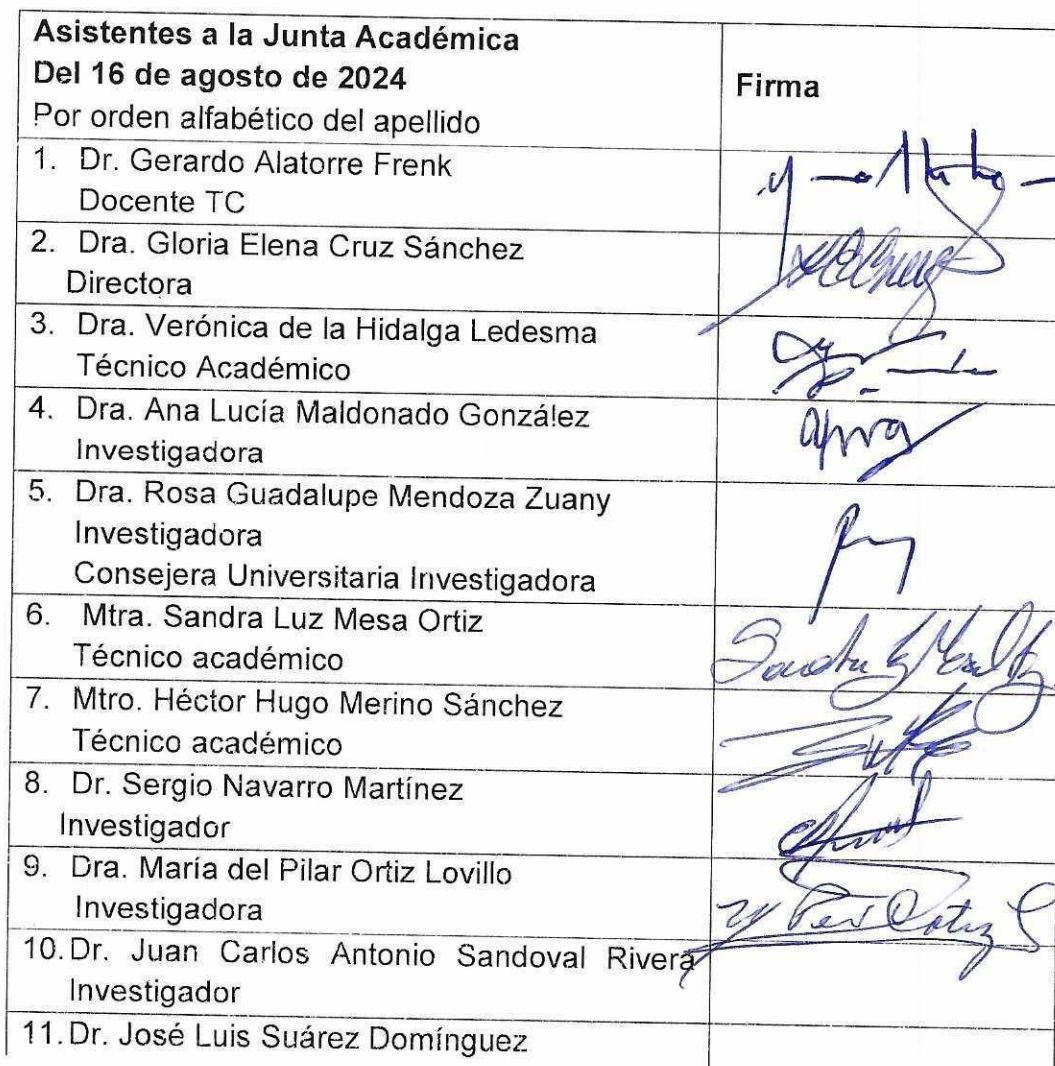 Asistentes a la Junta Académica
Del 16 de agosto de 2024
Por orden alfabético del apellido
Firma
1. Dr. Gerardo Alatorre Frenk
Docente TC
2. Dra. Gloria Elena Cruz Sánchez
Directora
3. Dra. Verónica de la Hidalga Ledesma
Técnico Académico
4. Dra. Ana Lucía Maldonado González
Investigadora
5. Dra. Rosa Guadalupe Mendoza Zuany
Investigadora
Consejera Universitaria Investigadora
6. Mtra. Sandra Luz Mesa Ortiz
Técnico académico
7. Mtro. Héctor Hugo Merino Sánchez
Técnico académico
8. Dr. Sergio Navarro Martínez
Investigador
9. Dra. María del Pilar Ortiz Lovillo
Investigadora
10. Dr. Juan Carlos Antonio Sandoval Rivera
Investigador
11. Dr. José Luis Suárez Domínguez